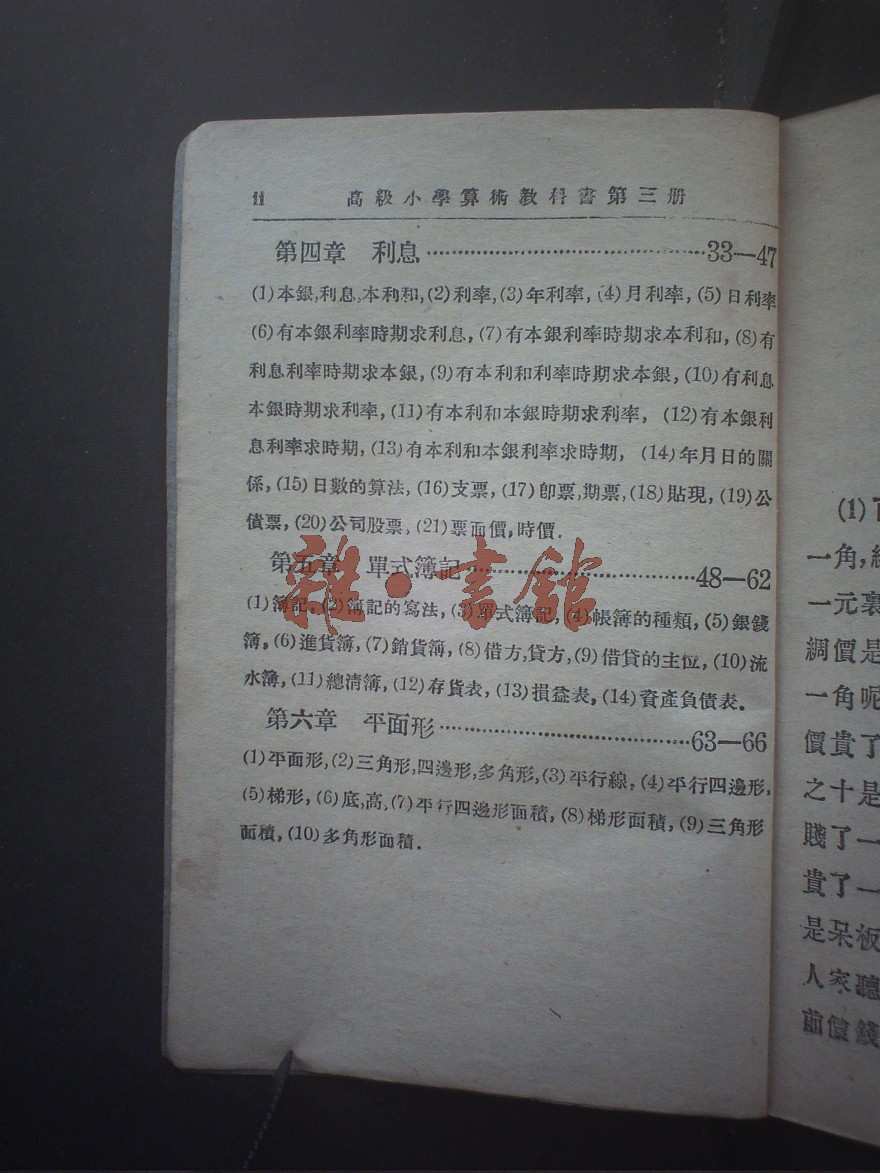 11 高級小學算術教科書第三册
第四章 利息……………………………33—47
(1)本銀,利息,本利和,(2)利率,(3)年利率,(4)月利率,(5)日利率
(6)有本銀利率時期求利息,(7)有本銀利率時期求本利和,(8)有
利息利率時期求本銀,(9)有本利和利率時期求本銀,(10)有利息
本銀時期求利率,(11)有本利和本銀時期求利率,(12)有本銀利
息利率求時期,(13)有本利和本銀利率求時期,(14)年月日的關
係,(15)日數的算法,(16)支票,(17)卽票,期票,(18)貼現,(19)公
債票,(20)公司股票,(21)票面價,時價.
第五章 單式簿記……………………………48—62
(1)簿記,(2)簿記的寫法,(3)單式簿記,(4)帳簿的種類,(5)銀錢
簿,(6)進貨簿,(7)銷貨簿,(8)借方,貸方,(9)借貸的主位,(10)流
水簿,(11)總清簿,(12)存貨表,(13)損益表,(14)資產負債表.
第六章 平面形……………………………63—66
(1)平面形,(2)三角形,四邊形,多角形,(3)平行線,(4)平行四邊形,
(5)梯形,(6)底,高,(7)平行四邊形面積,(8)梯形面積,(9)三角形
面積,(10)多角形面積.
雜·書館
(1)
一角,
一元裏
綢價是
一角呢
價貴了
之十是
賤了一
貴了一
是呆板
人家聽
前價錢